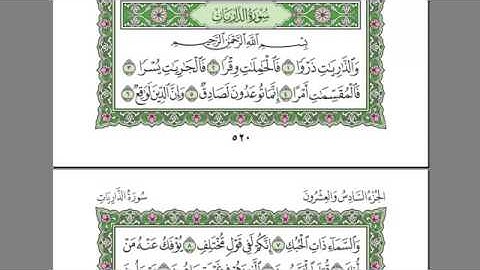 سُورَةُ الذَّارِيَاتِ
بِسْمِ اللَّهِ الرَّحْمَٰنِ الرَّحِيمِ
وَالذَّارِيَاتِ ذَرْوًا ١ فَالْحَامِلَاتِ وِقْرًا ٢ فَالْجَارِيَاتِ يُسْرًا ٣
فَالْمُقَسِّمَاتِ أَمْرًا ٤ إِنَّمَا تُوعَدُونَ لَصَادِقٌ ٥ وَإِنَّ الدِّينَ لَوَاقِعٌ ٦
٥٢٠
الجُزْءُ السَّادِسُ وَالعِشْرُونَ
سُورَةُ الذَّارِيَاتِ
وَالسَّمَاءِ ذَاتِ الْحُبُكِ ٧ إِنَّكُمْ لَفِي قَوْلٍ مُّخْتَلِفٍ ٨ يُؤْفَكُ عَنْهُ مَنْ